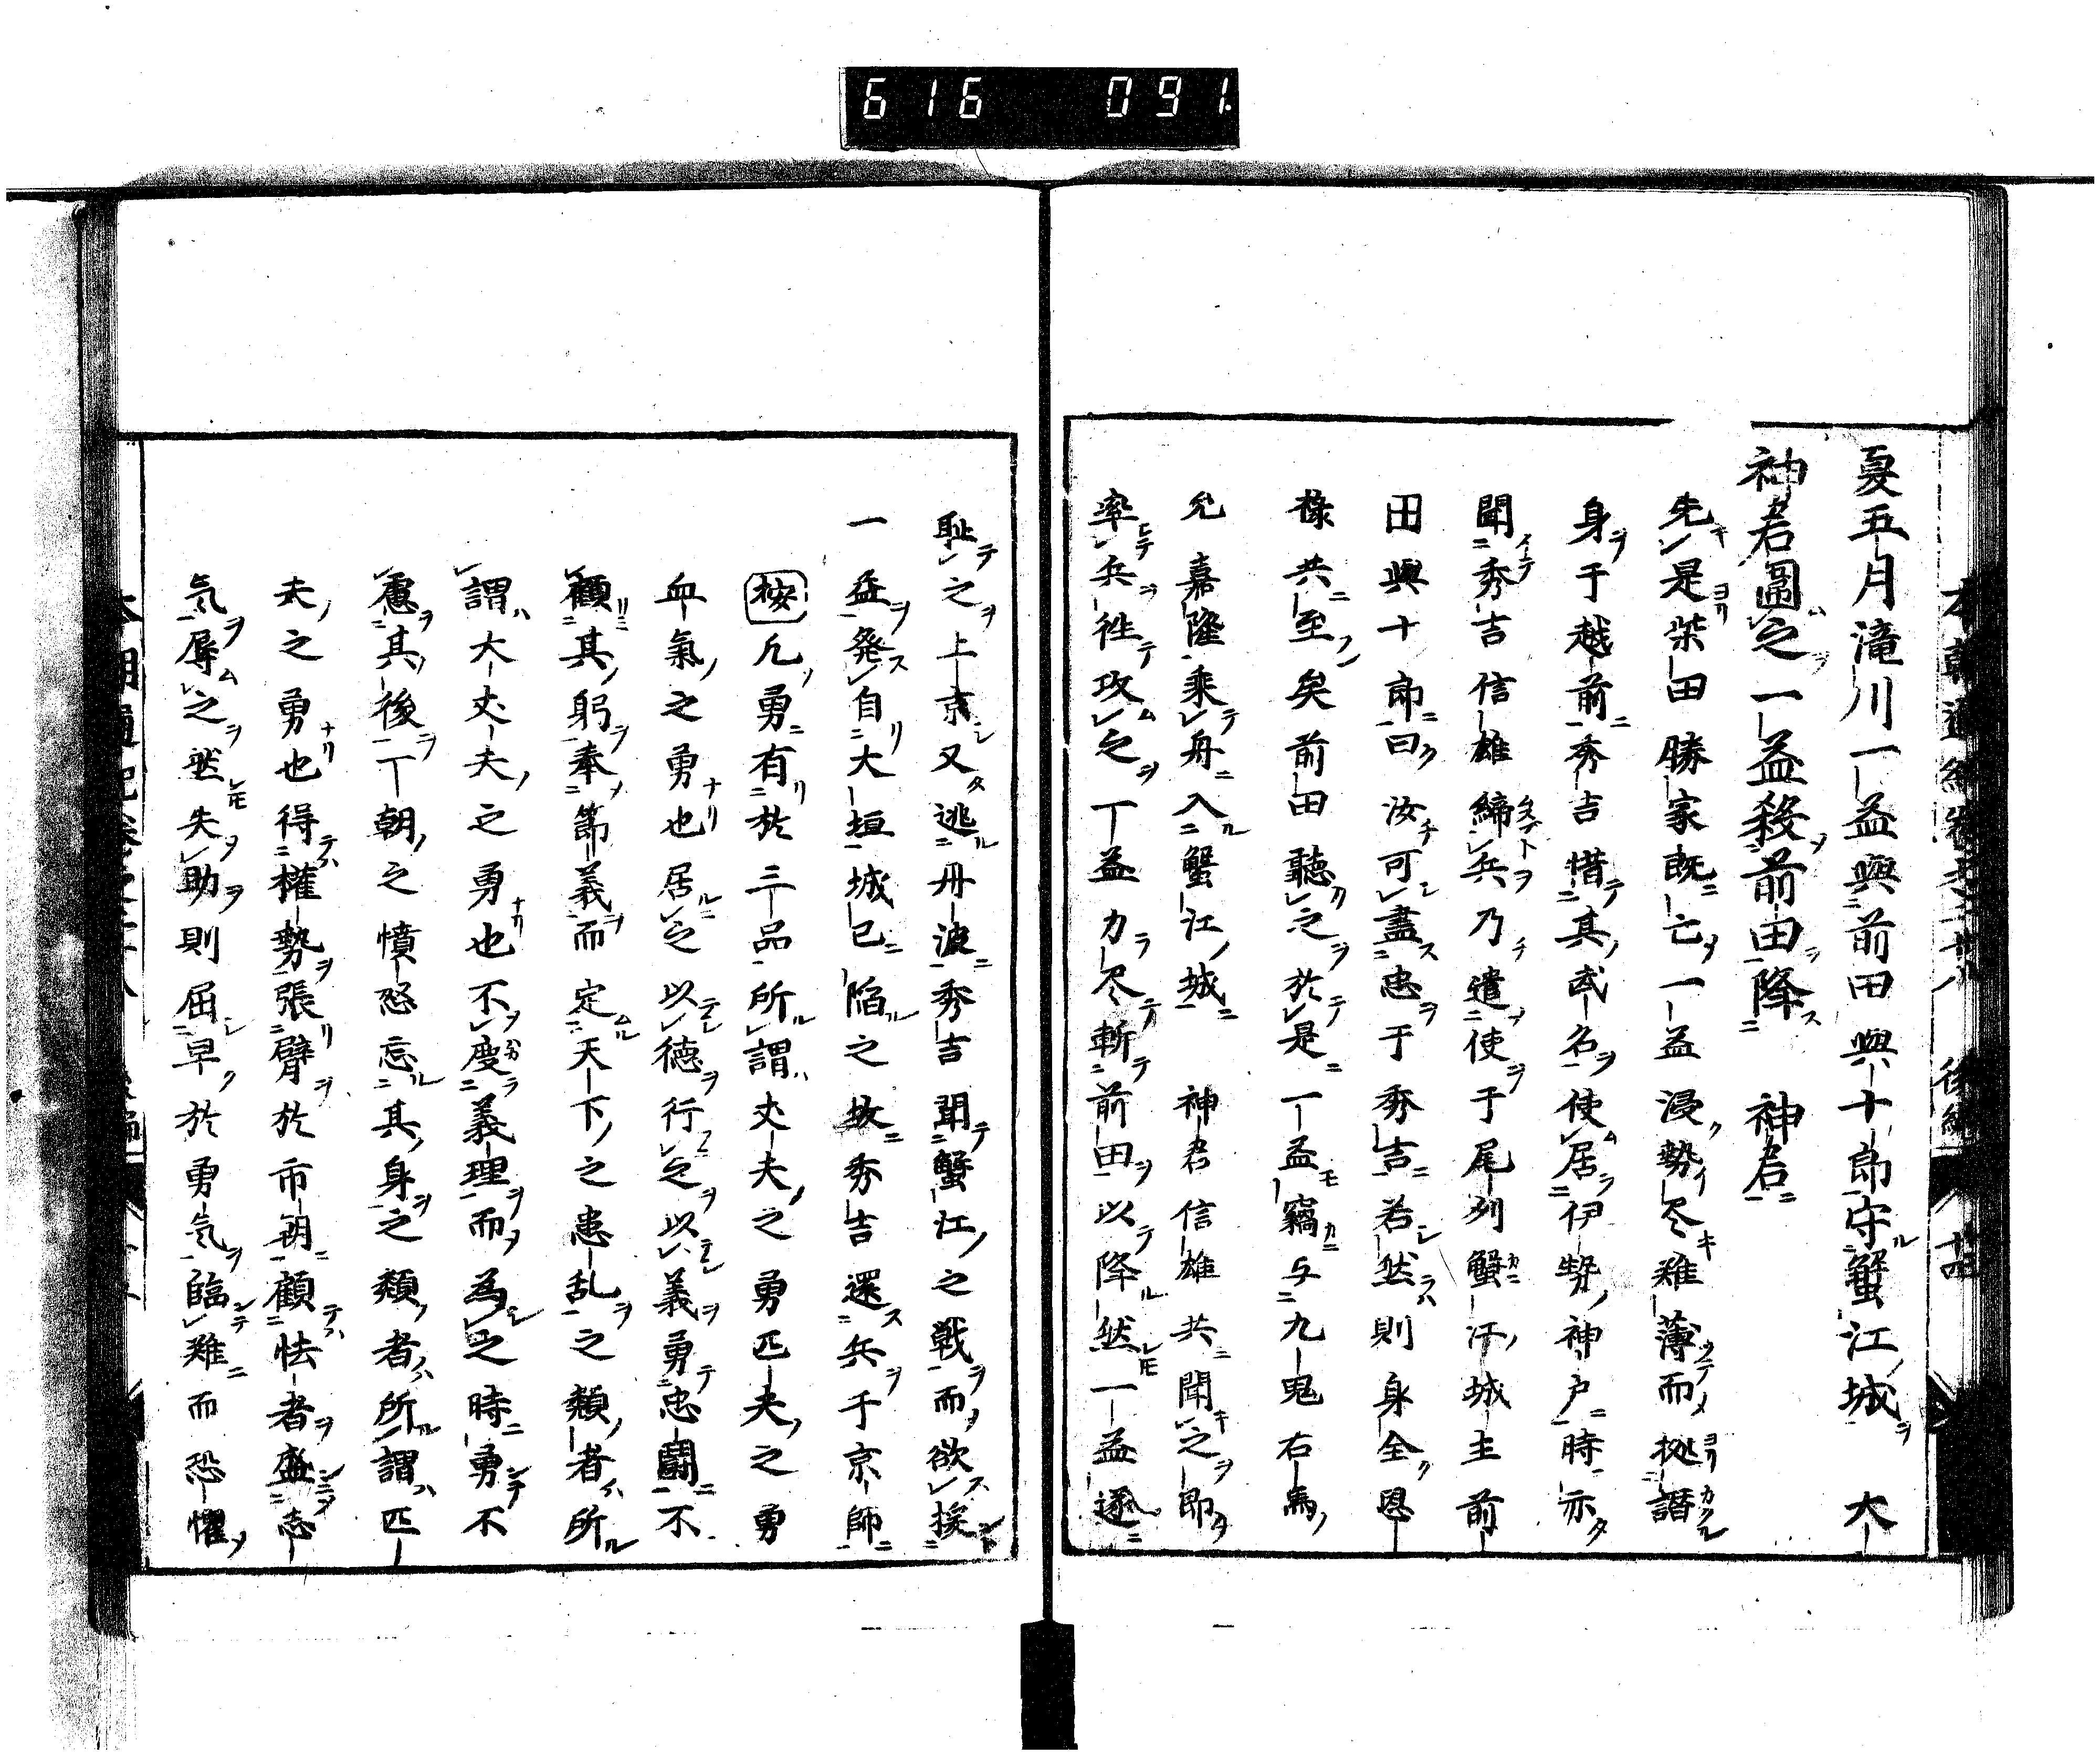 616 091
夏五月滝川一益與前田與十郎守蟹江城 大
神君圍之一益殺前田降 神君
先是柴田勝家既亡一益浸勢尽雖薄而拠譖
身于越前秀吉惜其武名使居伊勢神戸時亦
聞秀吉信雄締兵乃遣使于尾列蟹江城主前
田與十郎曰汝可盡忠于秀吉若然則身全恩
祿共至矣前田聴之於是一益竊与九鬼右馬
允嘉隆乗舟入蟹江城 神君信雄共聞之即
率兵往攻之一益力尽斬前田以降然一益遂
恥之上京又逃丹波秀吉聞蟹江之戦而欲援
一益発自大垣城已陥之故秀吉還兵于京師
按凡勇有於三品所謂丈夫之勇匹夫之勇
血氣之勇也居之以徳行之以義勇忠闘不
顧其躬奉節義而定天下之患乱之類者所
謂大丈夫之勇也不慶義理而為之時勇不
慮其後一朝之憤怒忘其身之類者所謂匹
夫之勇也得權勢張臂於市朝顧怯者盛志
気辱之然失助則屈早於勇気臨難而恐懼